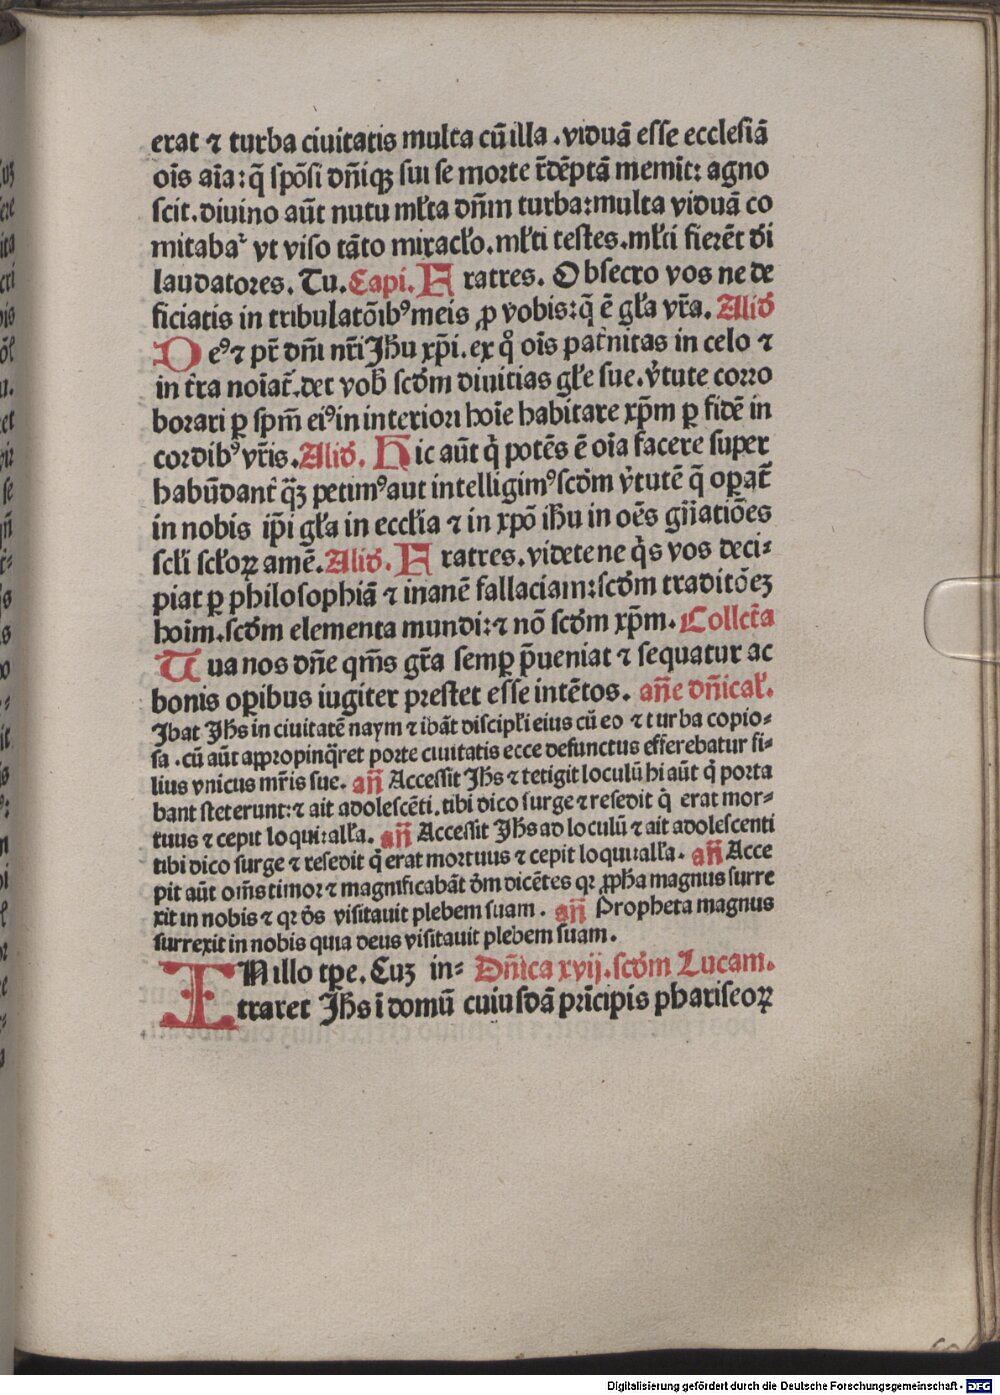 erat ⁊ turba ciuitatis multa cū illa . viduā esse ecclesiā
oīs aīa: q̄ spōsi dñiqꝫ sui se morte r̄dēptā memīt: agno
scit. diuino aūt nutu mł̄ta dñm turba: multa viduā co
mitabaᷣ vt viso tāto miracło. mł̄ti testes. mł̄ti fierēt di
laudatores. Tu. Capi. Fratres. Obsecro vos ne de
ficiatis in tribulatōibꝰ meis ꝓ vobis: q̄ ē gła vr̄a. Aliđ
Deꝰ ⁊ pr̄ dñi nr̄i Jħu xp̄i. ex qͦ oīs pat̄nitas in celo ⁊
in t̄ra noīat̄. det vob̄ scđm diuitias głe sue. v̄tute corro
borari ꝑ spm̄ eiꝰ in interiori hoīe habitare xp̄m ꝑ fidē in
cordibꝰ vr̄is. Aliđ. Hic aūt q̄ potēs ē oīa facere super
habūdant̄ q̄ꝫ petimꝰ aut intelligimꝰ scđm v̄tutē q̄ oꝑat̄
in nobis ip̄i gła in ecclīa ⁊ in xp̄o iħu in oēs gn̄atiōes
scłi scłoꝝ amē. Aliđ. Fratres. videte ne q̄s vos deci⸗
piat ꝑ philosophiā ⁊ inanē fallaciam: scđm traditōeꝫ
hoīm. scđm elementa mundi: ⁊ nō scđm xp̄m. Collc̄ta
Tua nos dñe qm̄s gr̄a semꝑ p̄ueniat ⁊ sequatur ac
bonis oꝑibus iugiter prestet esse intētos. añe dñicał.
Jbat Jħs in ciuitatē naym ⁊ ibāt discipłi eius cū eo ⁊ turba copio⸗
sa . cū aūt appropinq̄ret porte ciuitatis ecce defunctus efferebatur fi⸗
lius vnicus mr̄is sue. añ Accessit Jħs ⁊ tetigit loculū hi aūt q̄ porta
bant steterunt: ⁊ ait adolescēti. tibi dico surge ⁊ resedit q̄ erat mor⸗
tuus ⁊ cepit loqui: alła. añ Accessit Jħs ad loculū ⁊ ait adolescenti
tibi dico surge ⁊ resedit q̄ erat mortuus ⁊ cepit loqui: alła. añ Acce
pit aūt om̄s timor ⁊ magnificabāt đm dicētes qꝛ ꝓpħa magnus surre
xit in nobis ⁊ qꝛ đs visitauit plebem suam . añ Propheta magnus
surrexit in nobis quia deus visitauit plebem suam.
IN illo tꝑe. Cuꝫ in⸗ Dñica xvij. scđm Lucam.
traret Jħs ī domū cuiusdā prīcipis phariseoꝝ
Digitalisierung gefördert durch die Deutsche Forschungsgemeinschaft - DFG